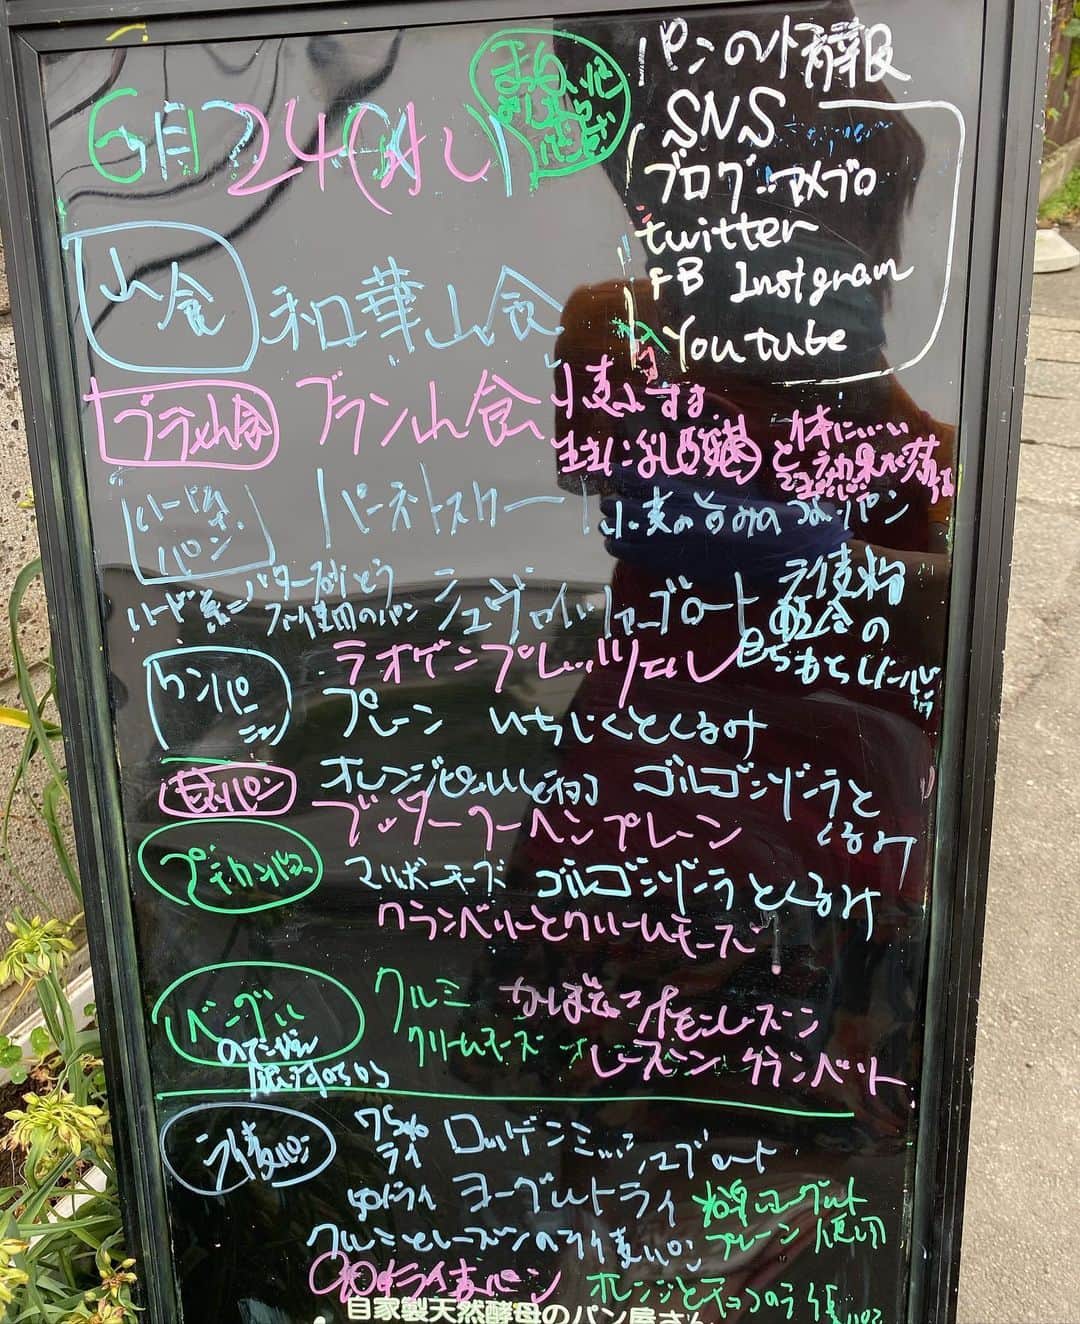 パンの情報
6月24(水)
SNS
ブログ アメブロ
twitter
FB Instgram
Youtube
山食
和華山食
ブラン山食
ブラン山食
小麦ふすま
生きた乳酸菌と
体にいい
ハード系
パン
バーネトスクー
小麦の旨みのつよいパン
ハード系ニ
バター
使用のパン
シュヴァイツァーブロート
ライ麦粉
カンパーニュ
ラオゲンプレッツェル
プレーン いちじくとくるみ
甘いパン
オレンジピールとチョコ ゴルゴンゾーラと
くるみ
ブッタークーヘンプレーン
プチカンパーニュ
マルボーチーズ ゴルゴンゾーラとくるみ
クランベリーとクリームチーズ
ベーグル
クルミ
かぼちゃ シナモンレーズン
クリームチーズ
レーズン クランベリー
ライ麦パン
75%
ライ
ロッゲンミッシュブロート
50%ライ ヨーグルトライ
ヨーグルト
プレーン 使用
クルミとレーズンのライ麦パン
90%ライ麦パン
オレンジとチョコのライ麦パン
自家製天然酵母のパン屋さん